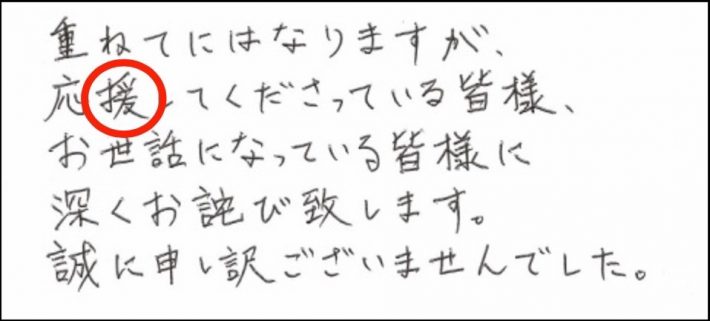 重ねてにはなりますが、
応援してくださっている皆様、
お世話になっている皆様に
深くお詫び致します。
誠に申し訳ございませんでした。